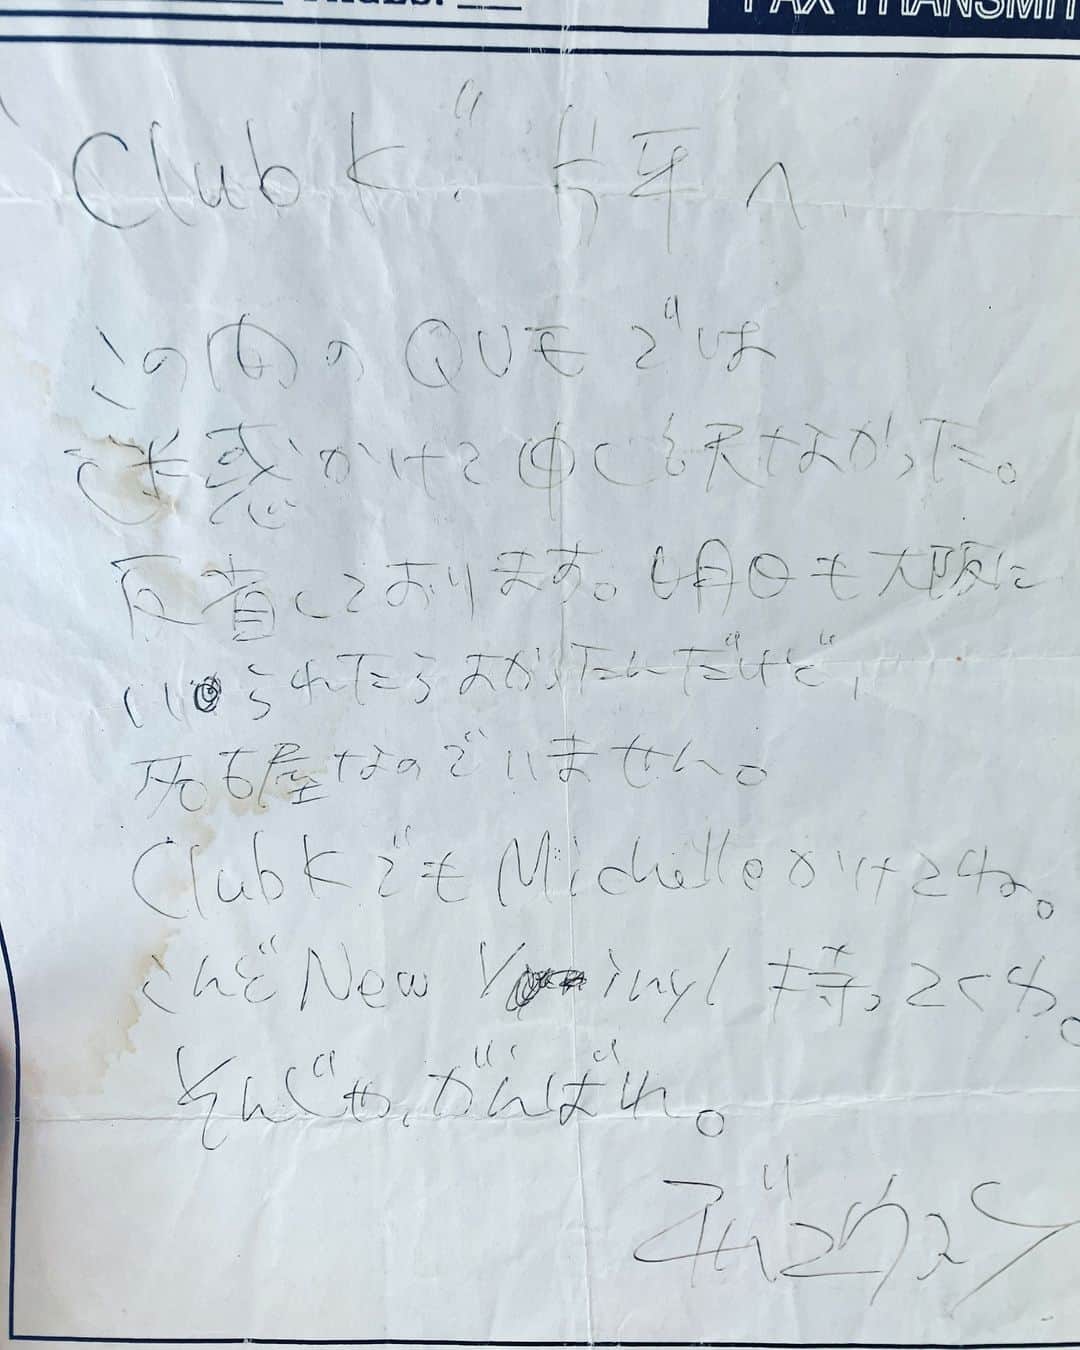 PAGES:
FAX TRANSMIT
Club K" 片平へ
この間のQUEでは
迷惑かけて申し訳なかった。
反省しております。明日も大阪に
いられたらよかったんだけど、
名古屋なのでいません。
Club KでもMichelleかけてね。
こんどNew Vinyl 持ってくわ。
そんじゃ、がんばれ。